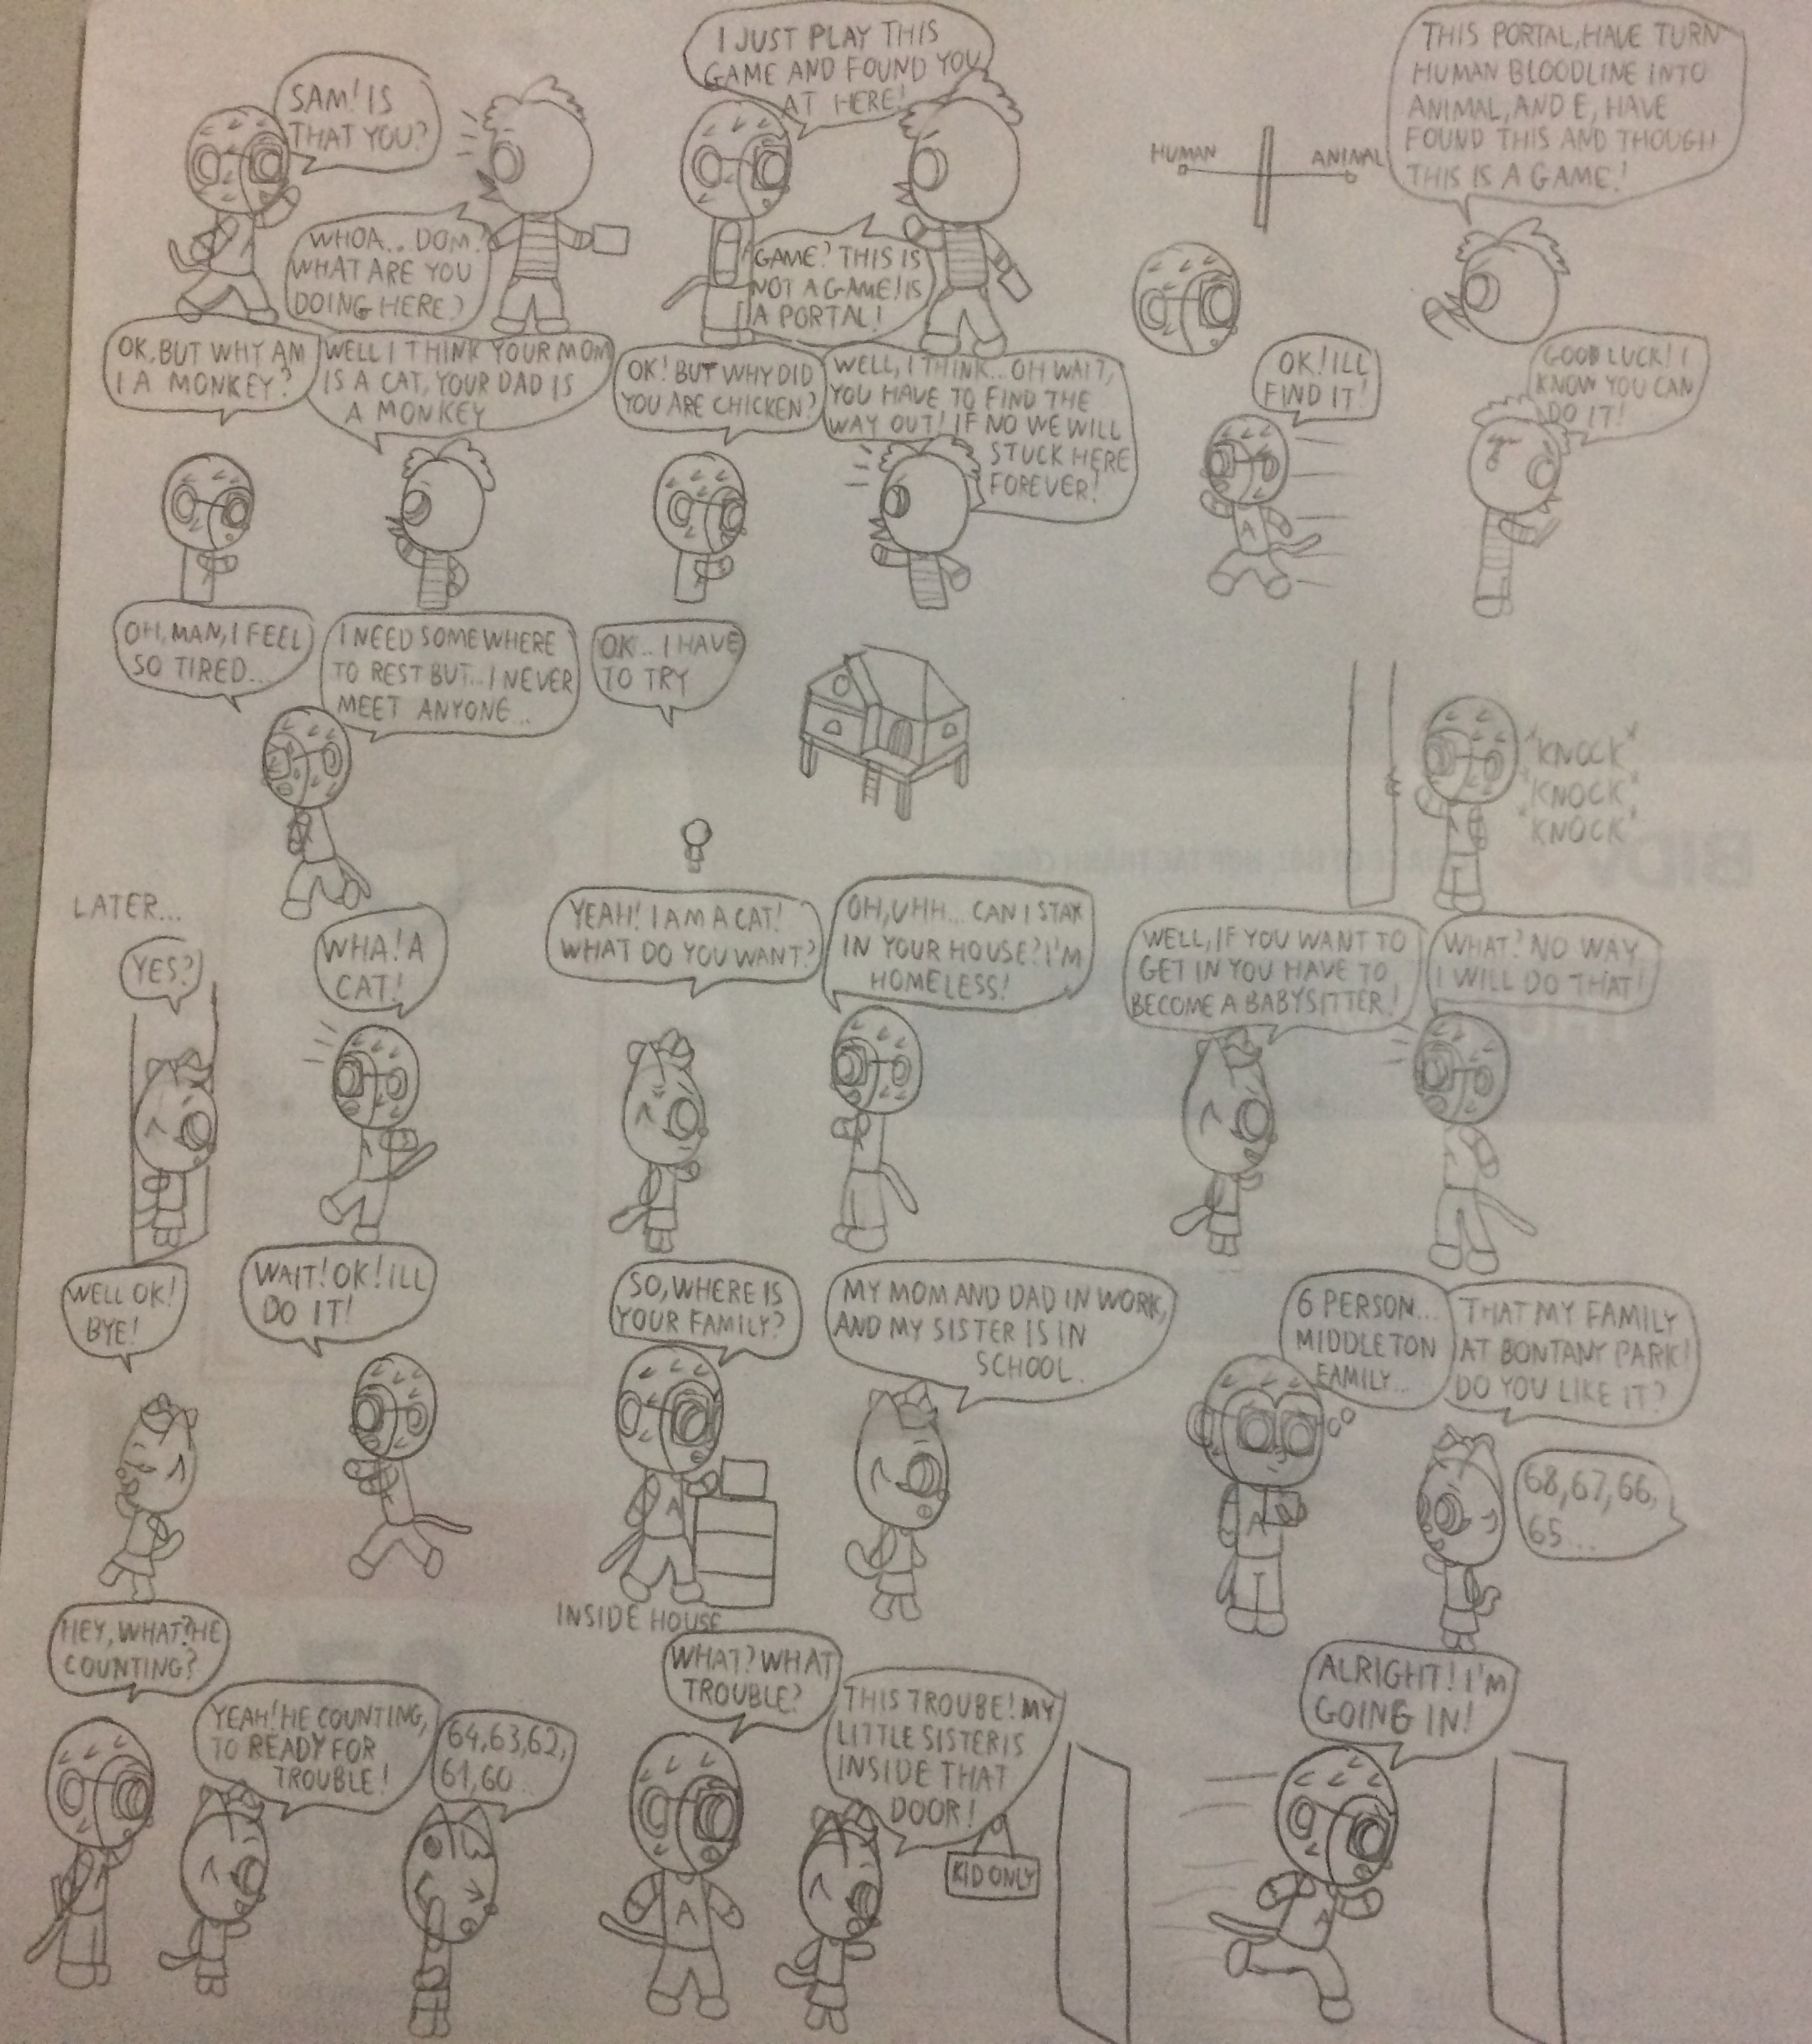 SAM! IS
THAT YOU?
WHOA... DOM?
WHAT ARE YOU
DOING HERE?
I JUST PLAY THIS
GAME AND FOUND YOU
AT HERE!
GAME? THIS IS
NOT A GAME! IS
A PORTAL!
HUMAN
ANIMAL
THIS PORTAL, HAVE TURN
HUMAN BLOODLINE INTO
ANIMAL, AND E, HAVE
FOUND THIS AND THOUGH
THIS IS A GAME!
OK, BUT WHY AM
I A MONKEY?
WELL I THINK YOUR MOM
IS A CAT, YOUR DAD IS
A MONKEY
OK! BUT WHY DID
YOU ARE CHICKEN?
WELL, I THINK... OH WAIT,
YOU HAVE TO FIND THE
WAY OUT! IF NO WE WILL
STUCK HERE
FOREVER!
OK! ILL
FIND IT!
GOOD LUCK! I
KNOW YOU CAN
DO IT!
OH, MAN, I FEEL
SO TIRED...
I NEED SOMEWHERE
TO REST BUT... I NEVER
MEET ANYONE...
OK... I HAVE
TO TRY
*KNOCK*
*KNOCK*
*KNOCK*
LATER...
YES?
WHA! A
CAT!
YEAH! I AM A CAT!
WHAT DO YOU WANT?
OH, UHH... CAN I STAY
IN YOUR HOUSE? I'M
HOMELESS!
WELL, IF YOU WANT TO
GET IN YOU HAVE TO
BECOME A BABYSITTER!
WHAT? NO WAY
I WILL DO THAT!
WELL OK!
BYE!
WAIT! OK! ILL
DO IT!
SO, WHERE IS
YOUR FAMILY?
MY MOM AND DAD IN WORK,
AND MY SISTER IS IN
SCHOOL.
INSIDE HOUSE
6 PERSON...
MIDDLETON
FAMILY...
THAT MY FAMILY
AT BONTANY PARK!
DO YOU LIKE IT?
68, 67, 66,
65...
HEY, WHAT? HE
COUNTING?
YEAH! HE COUNTING,
TO READY FOR
TROUBLE!
64, 63, 62,
61, 60...
WHAT? WHAT
TROUBLE?
THIS TROUBE! MY
LITTLE SISTER IS
INSIDE THAT
DOOR!
KID ONLY
ALRIGHT! I'M
GOING IN!
A
A
A
A
BIDV